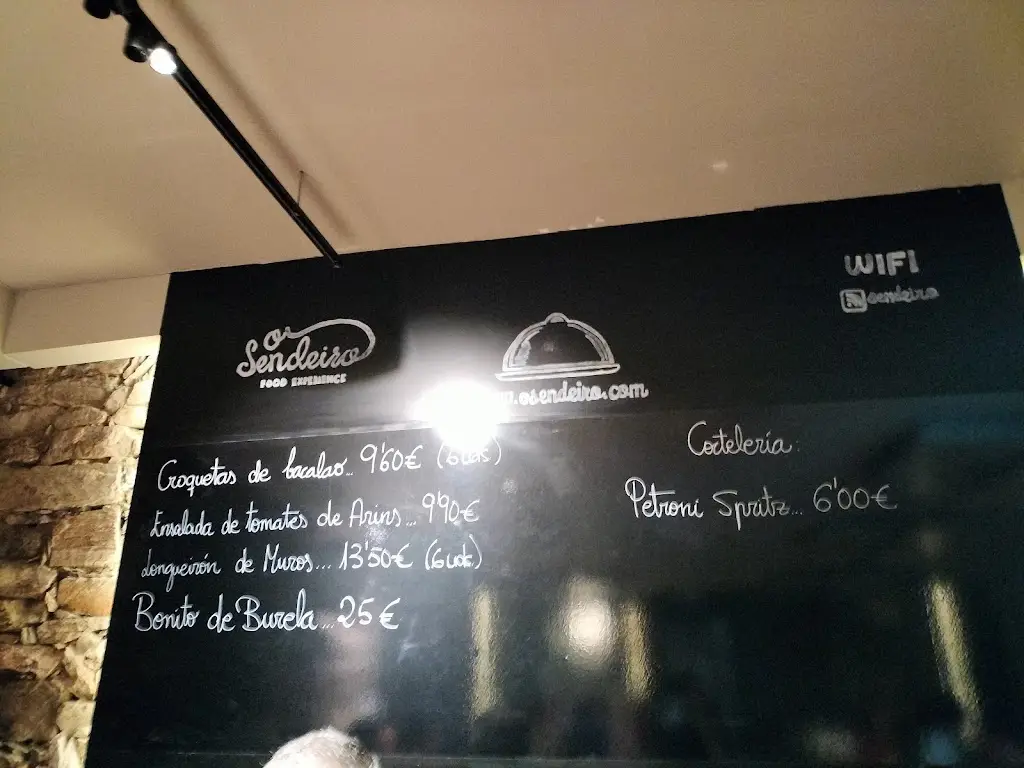 WIFI
osendeiro
O Sendeiro
FOOD EXPERIENCE
.osendeiro.com
Croquetas de bacalao... 9'60€ (6 uds)
Ensalada de tomates de Arins... 9'90€
Longueirón de Muros... 13'50€ (6 uds)
Bonito de Burela... 25€
Coctelería:
Petroni Spritz... 6'00€